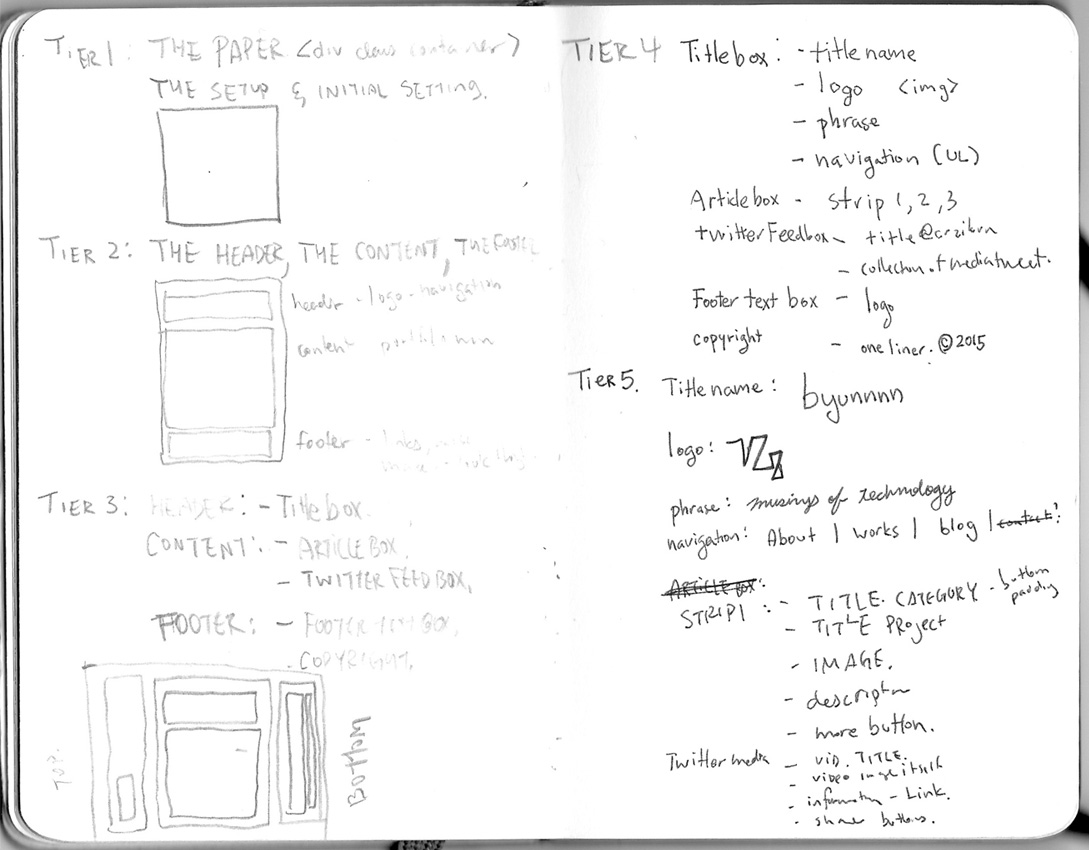 TIER 1: THE PAPER <div class container>
THE SETUP & INITIAL SETTING.
TIER 2: THE HEADER, THE CONTENT, THE FOOTER
header - logo - navigation
content
footer - links,
TIER 3: HEADER: - Title box.
CONTENT: - ARTICLE BOX.
- TWITTER FEED BOX,
FOOTER: - FOOTER TEXT BOX,
. COPYRIGHT.
TOP.
Bottom
TIER 4 Titlebox: - title name
- logo <img>
- phrase
- navigation (UL)
Articlebox - strip 1, 2, 3
twitterFeedbox - title
- collection of mediatweet.
Footer text box - logo
copyright - one liner. © 2015
TIER 5. Title name: byunnnn
logo:
phrase: musings of technology
navigation: About | works | blog | contact?
ARTICLE BOX:
STRIP 1: - TITLE CATEGORY - bottom padding
- TITLE PROJECT
- IMAGE.
- descriptn
- more button.
Twitter media - VID. TITLE.
- video image itself
- information - Link.
- share buttons.